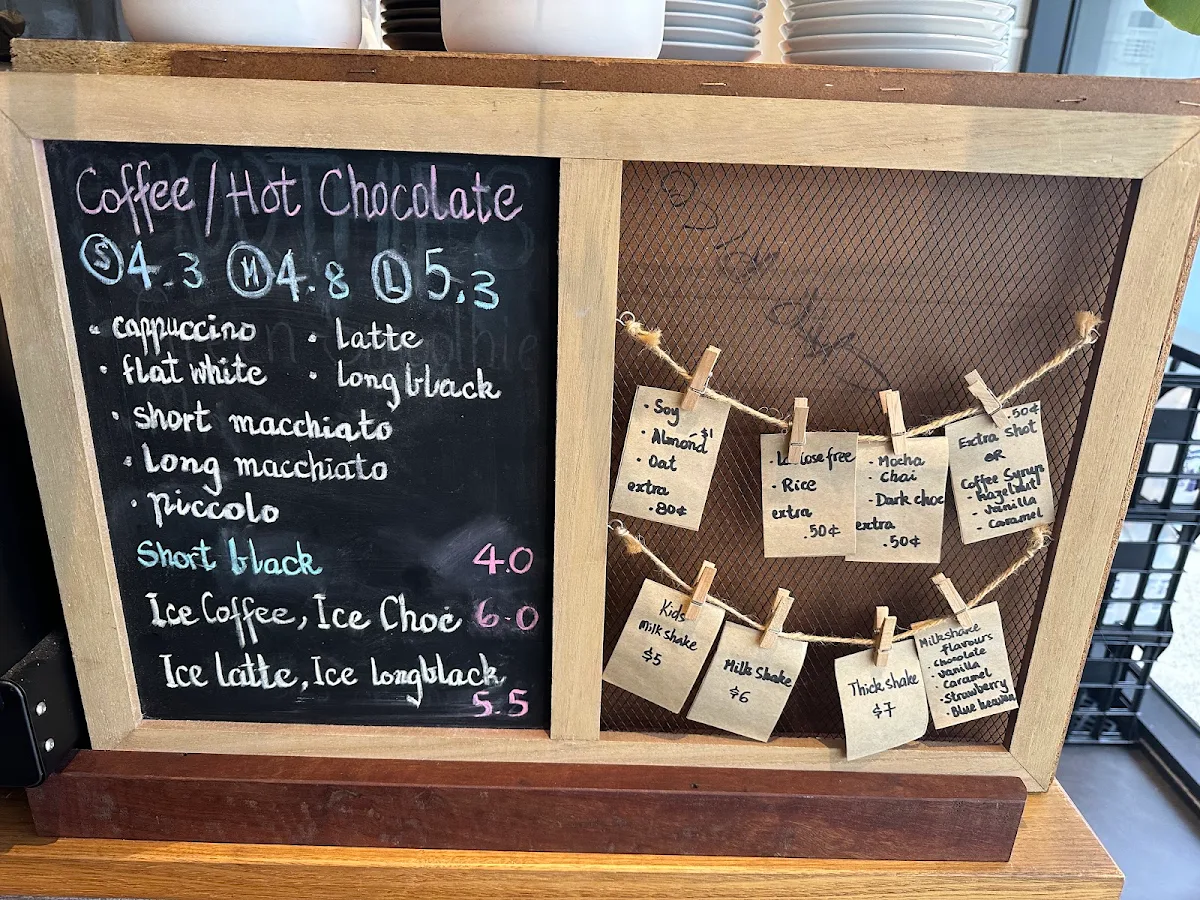 Coffee/Hot Chocolate
S 4.3 M 4.8 L 5.3
• cappuccino • Latte
• flat white • Long black
• short macchiato
• Long macchiato
• piccolo
Short black 4.0
Ice Coffee, Ice Choc 6.0
Ice latte, Ice longblack
5.5
• Soy
• Almond $1
• Oat
extra
.80¢
free
• Rice
extra
.50¢
• Mocha
Chai
• Dark choc
extra
.50¢
.50¢
Extra shot
OR
Coffee Syrup
- Hazelnut
- Vanilla
- Caramel
Kids
Milk shake
$5
Milk Shake
$6
Thick shake
$7
Milkshake
flavours
• Chocolate
• Vanilla
• Caramel
• Strawberry
• Blue heaven